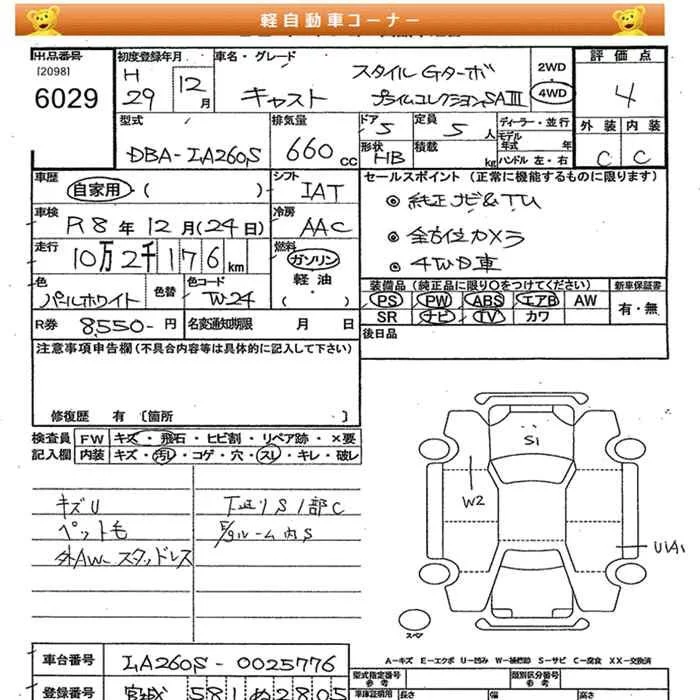 軽自動車コーナー
出品番号
[2098]
6029
初度登録年月
H
29
12
月
車名・グレード
キャスト
スタイル Gターボ
プライムコレクションSAIII
2WD
4WD
評価点
4
外装 内装
C C
型式
DBA-LA260S
排気量
660 cc
ドア
5
定員
5 人
ディーラー・並行
モデル
年式 年
形状
HB
積載
kg
ハンドル 左・右
車歴
自家用・( )
シフト
IAT
車検
R8年12月(24日)
冷房
AAC
走行
10万2千176 km
燃料
ガソリン
軽油
・( )
色
パールホワイト
色替
色コード
W24
R券 8,550- 円
名変通知期限 月 日
セールスポイント (正常に機能するものに限ります)
◎ 純正ナビ&TV
◎ 全方位カメラ
◎ 4WD車
装備品 (純正品に限り○をつけてください)
新車保証書
PS PW ABS エアB AW
有・無
SR ナビ TV カワ
後日品
注意事項申告欄(不具合内容等は具体的に記入して下さい)
修復歴 有 〔箇所 〕
検査員
記入欄
FW キズ・飛石・ヒビ割・リペア跡・×要
内装 キズ・汚レ・コゲ・穴・スレ・キレ・破レ
キズU
ペット毛
外AW-スタッドレス
下廻りS1部C
E/gルーム内S
S1
W2
U1A1
スペア
A-キズ E-エクボ U-凹み W-補修跡 S-サビ C-腐食 XX-交換済
車台番号
LA260S-0025776
登録番号
宮城 581 ぬ 2805
型式指定番号
参考
類別区分番号
参考
車庫証明用
長さ
幅
高さ